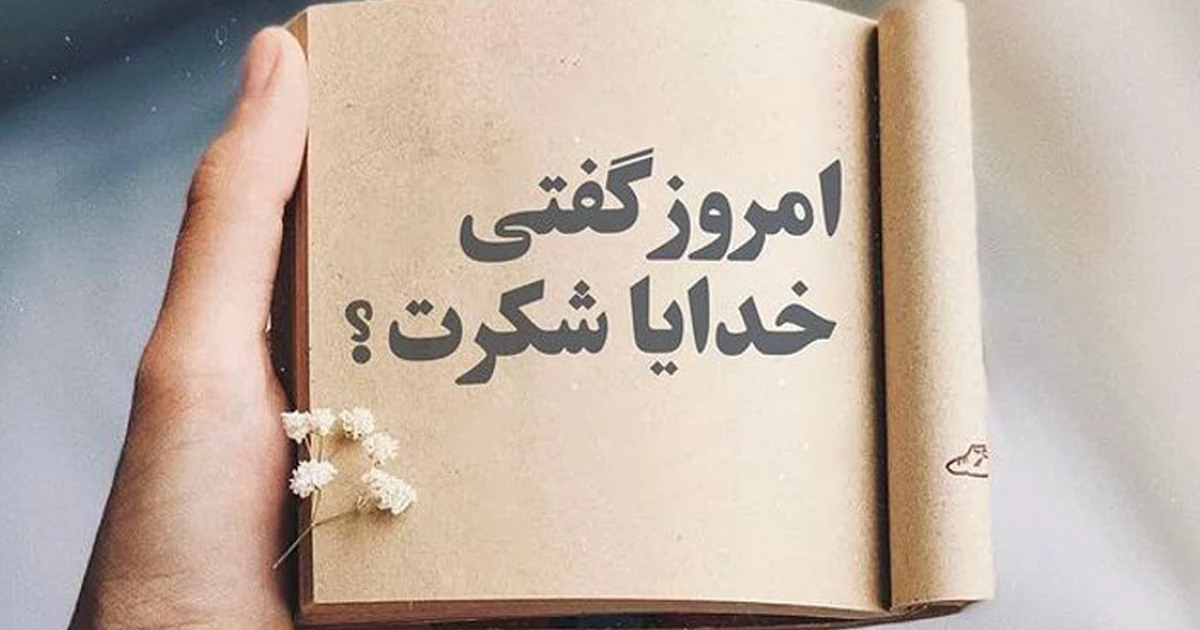 امروز گفتی
خدایا شکرت؟